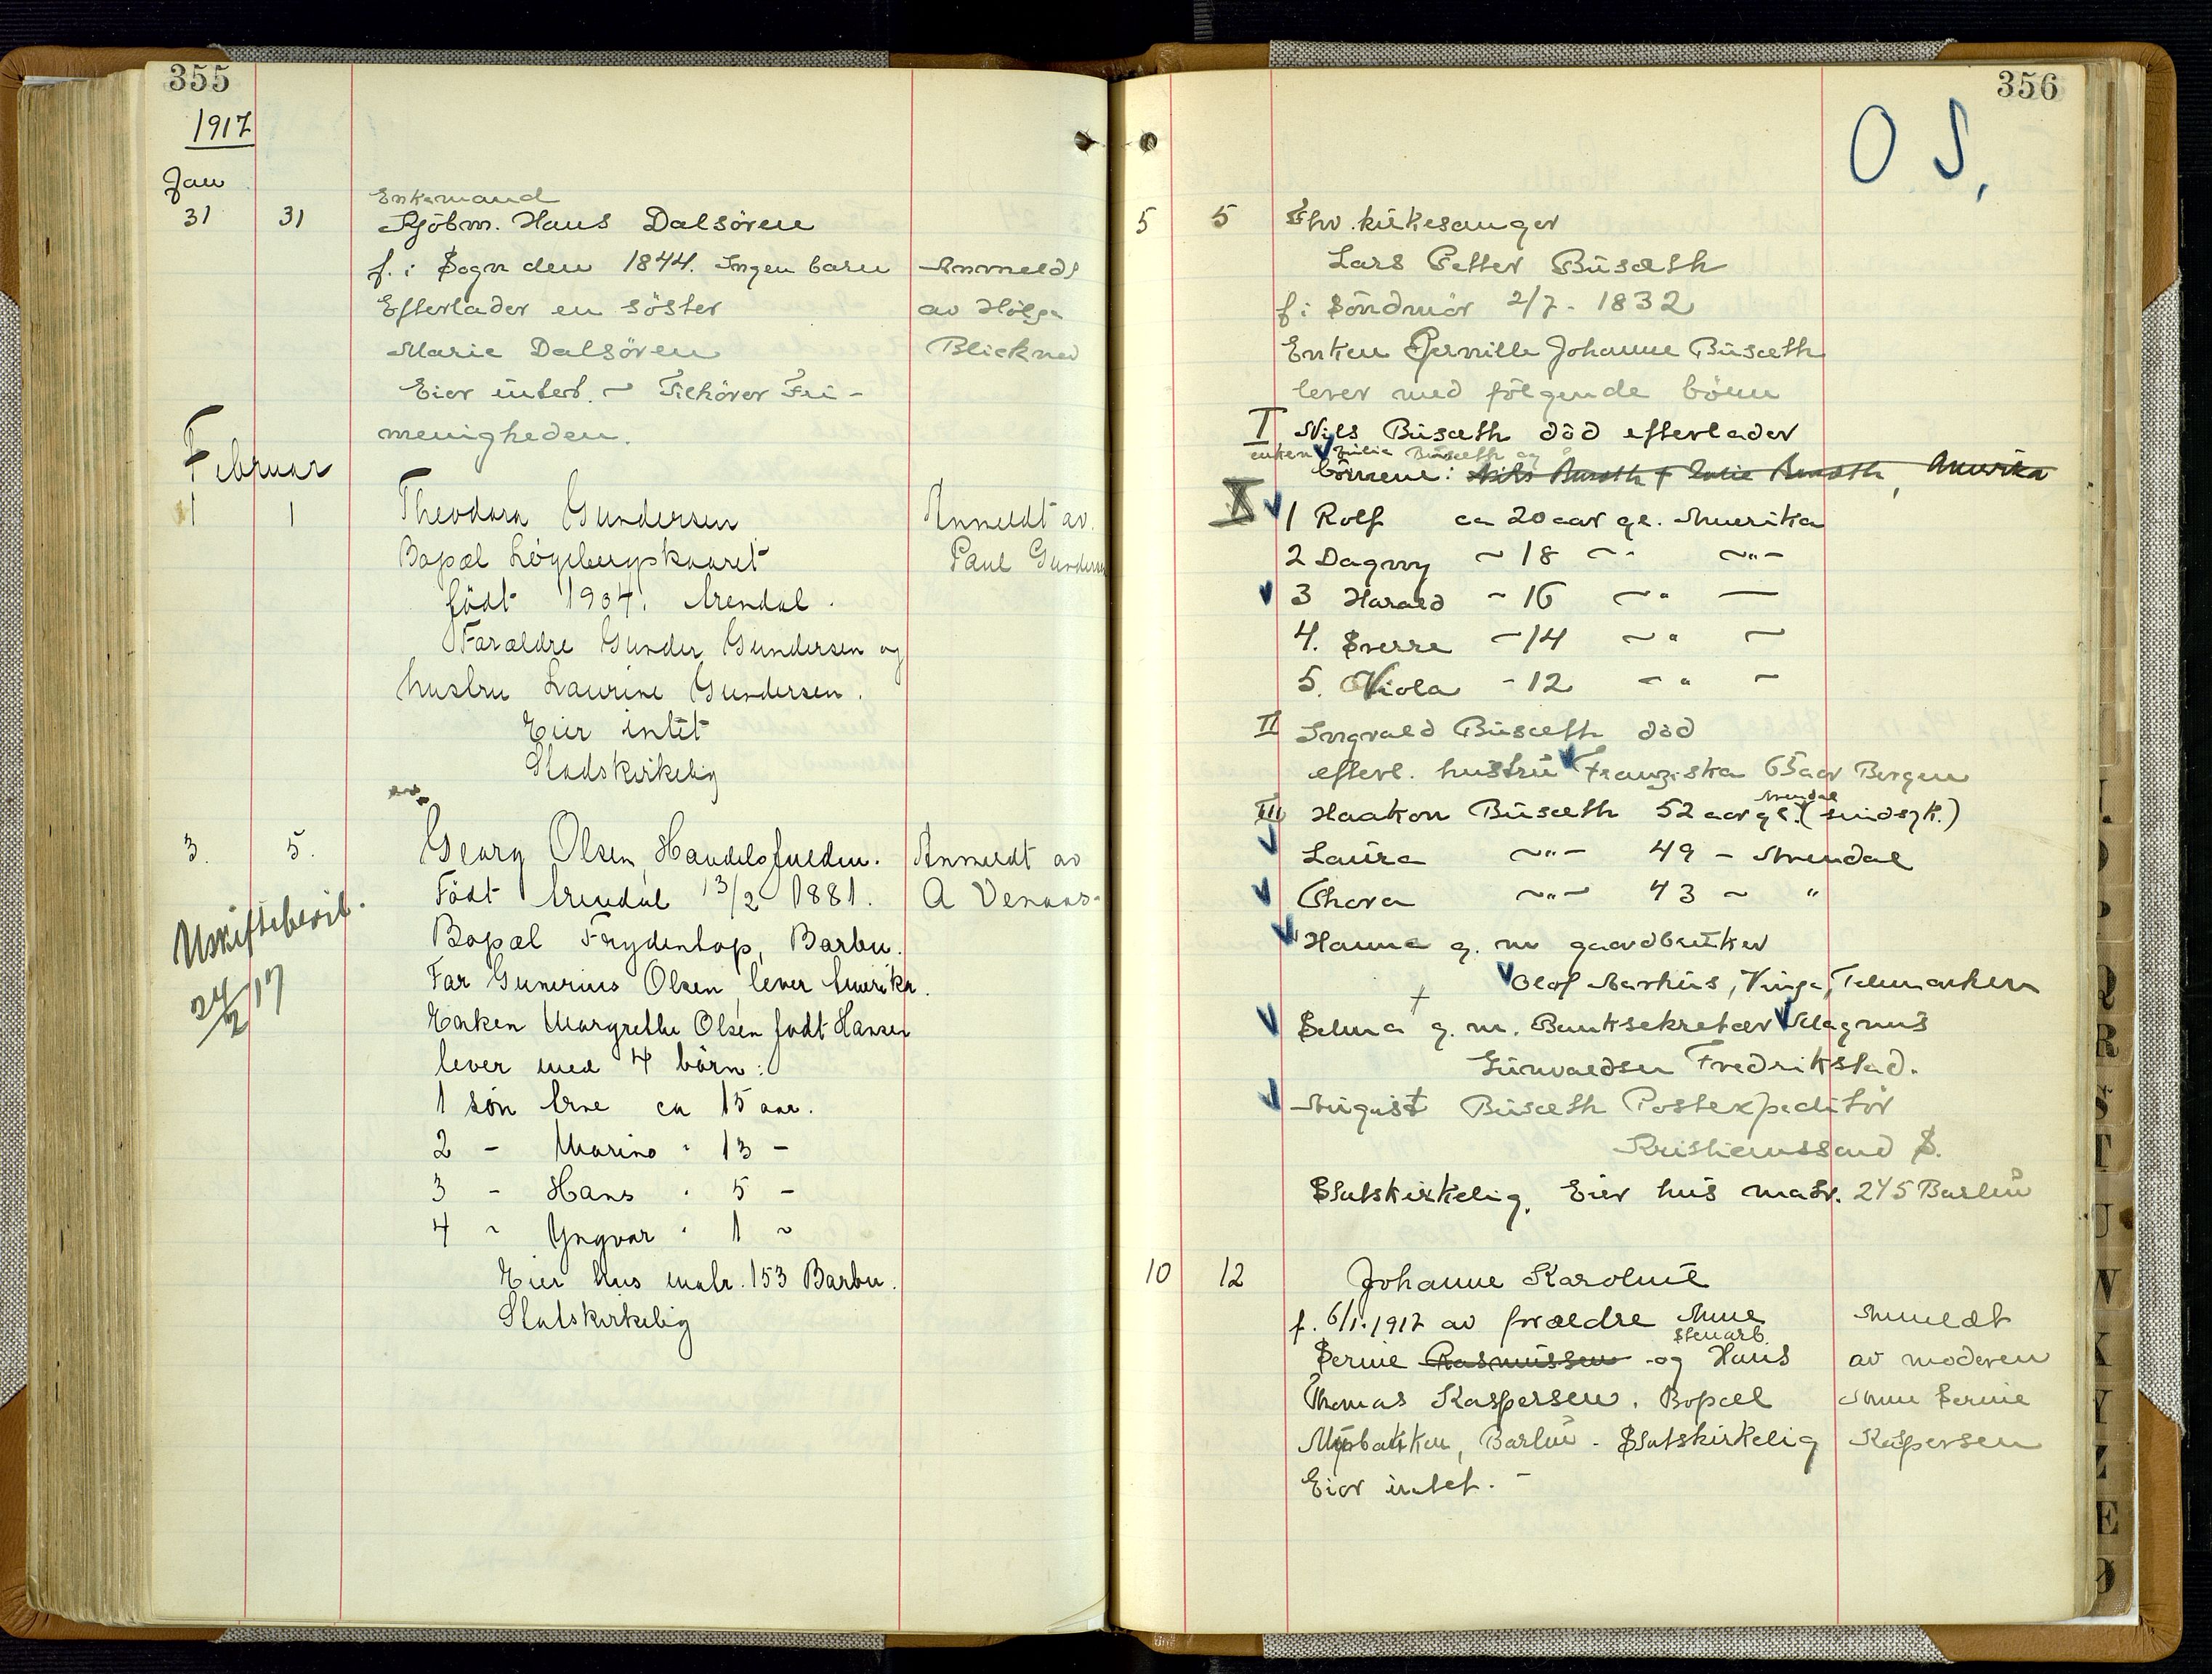 355
1917
Jan
Enkemand
31 31 Kjöbm. Hans Dalsören
f. i Sogn den 1844. Ingen barn Anmeldt
Efterlader en söster av Helge
Marie Dalsören
Eier intet. - Tilhörer Fri-
menigheden.
Februar
1 1 Theodora Gundersen Anmeldt av
Bopæl Løgebergskaaret Paul Gundersen
födt 1904. Arendal.
Forældre Gunder Gundersen og
hustru Laurine Gundersen.
Eier intet
Stadskirkelig
3. 5. Georg Olsen, Handelsfuldm. Anmeldt av
Födt Arendal 13/2 1881. A Venaas.
Bopæl Frydentop, Barbu.
Far Gunerius Olsen, lever Amerika.
Enken Margrethe Olsen födt Hansen
lever med 4 börn:
1 sön Arne ca 15 aar.
2 - Marino " 13 -
3 - Hans " 5 -
4 ~ Yngvar " 1 ~
Eier hus matr. 153 Barbu.
Statskirkelig
Uskiftebevil.
24/2 17
356
O S,
5 5 Fhv. kirkesanger
Lars Petter Busæth
f. i Söndmör 2/7 - 1832
Enken Pernille Johanne Busæth
lever med følgende börn
I Nils Busæth död efterlader
enken Julie Busæth og
börnene: Nils Busæth + Julie Busæth, Amerika
1 Rolf ca 20 aar gl. Amerika
2 Dagny ~ 18 ~ " ~ " -
3 Harald - 16 ~ " —
4. Sverre - 14 ~ " ~
5. Viola - 12 ~ " ~
II Ingvald Busæth död
efterl. hustru Franziska 65 aar Bergen
Arendal
III Haakon Busæth 52 aar gl. (sindsyk.)
Laura ~ " - 49 - Arendal
Thora ~ " - 43 ~ "
Hanna g. m gaardbruker
Olof Aarhus, Vinje, Telemarken
Selma + g. m. Banksekretær Magnus
Gunvaldsen Fredrikstad.
August Busæth Postexpeditör
Kristianssand S.
Statskirkelig. Eier hus matr. 245 Barbu
10 12 Johanne Karoline
f. 6/1. 1917 av forældre Anne Anmeldt
Stenarb.
Serine Rasmussen og Hans av moderen
Thomas Kaspersen. Bopæl Anne Serine
Myrbakken, Barbu - Statskirkelig Kaspersen
Eier intet. -